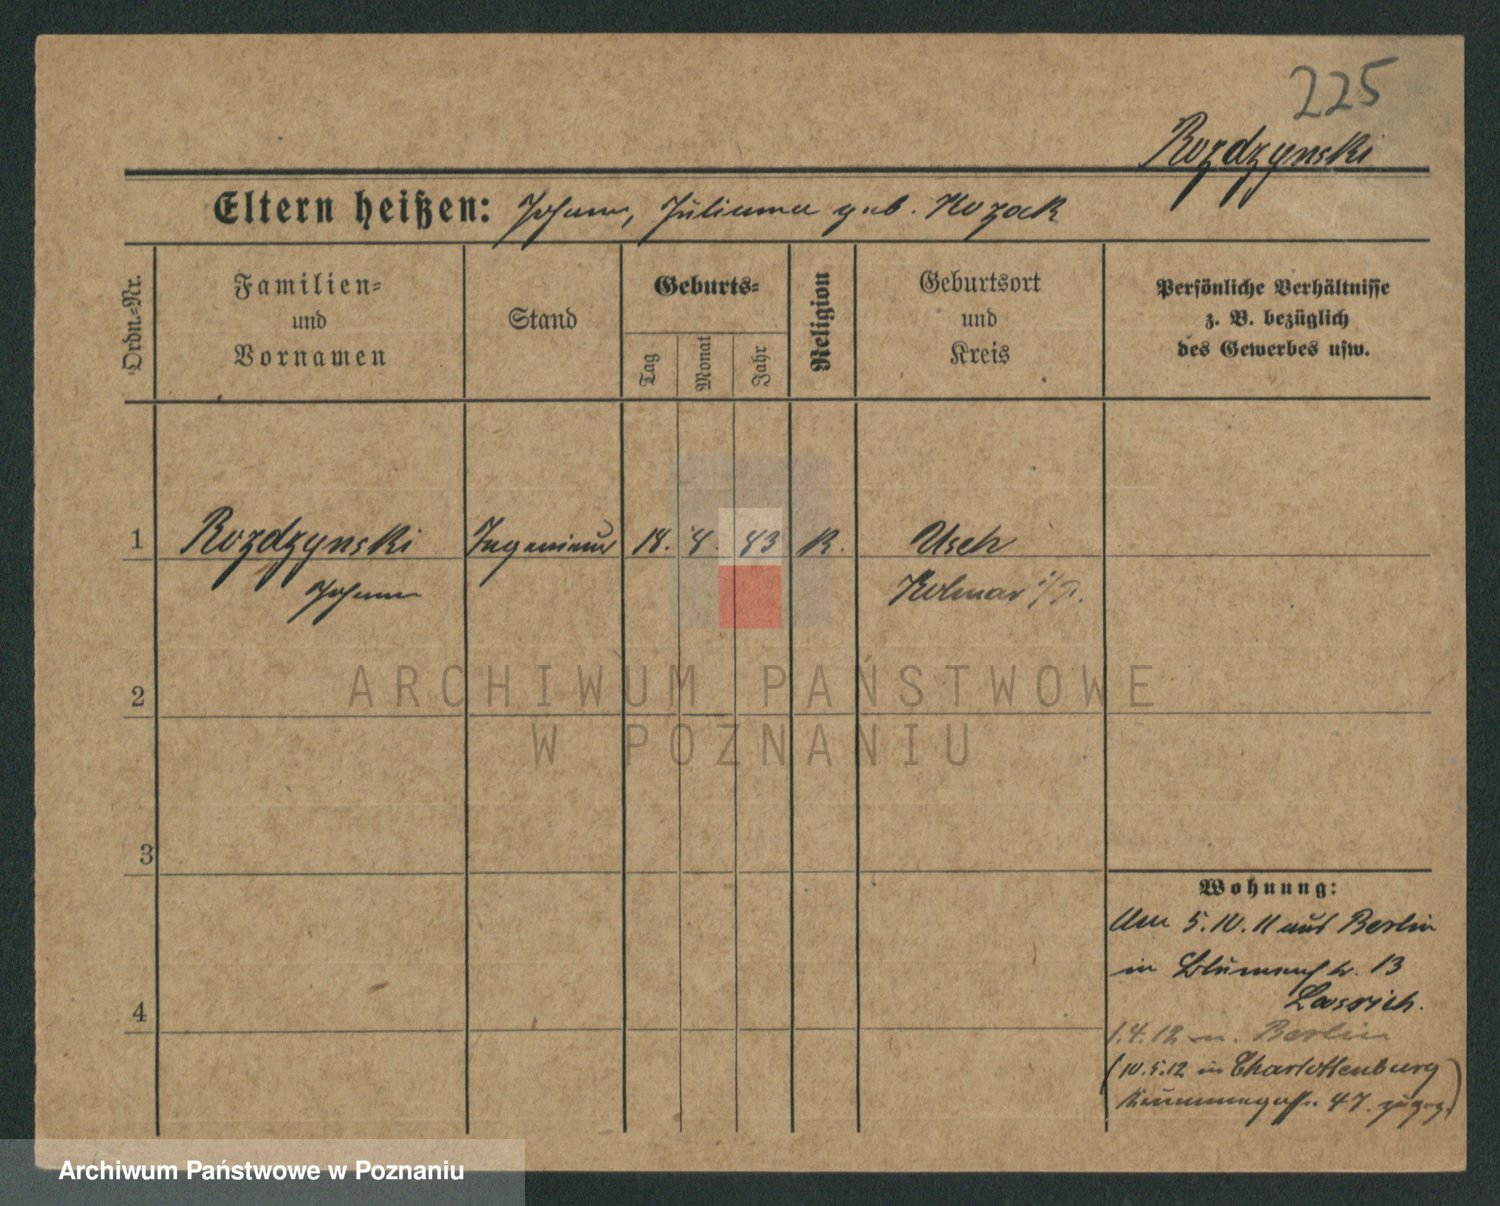 225
Rozdzynski
Eltern heißen: Johann, Julianna geb. Kozak
Ordn.-Nr.
Familien-
und
Vornamen
Stand
Geburts-
Tag
Monat
Jahr
Religion
Geburtsort
und
Kreis
Persönliche Verhältnisse
z. B. bezüglich
des Gewerbes usw.
1 Rozdzynski Ingenieur 18. 8. 83 K. Usch
Johann Kolmar i/P.
2
3
4
Wohnung:
Am 5.10.11 aus Berlin
in Blumenstr. 13
1.4.12 n. Berlin
(10.5.12 in Charlottenburg
47. zugez.)
ARCHIWUM PAŃSTWOWE
W POZNANIU
Archiwum Państwowe w Poznaniu